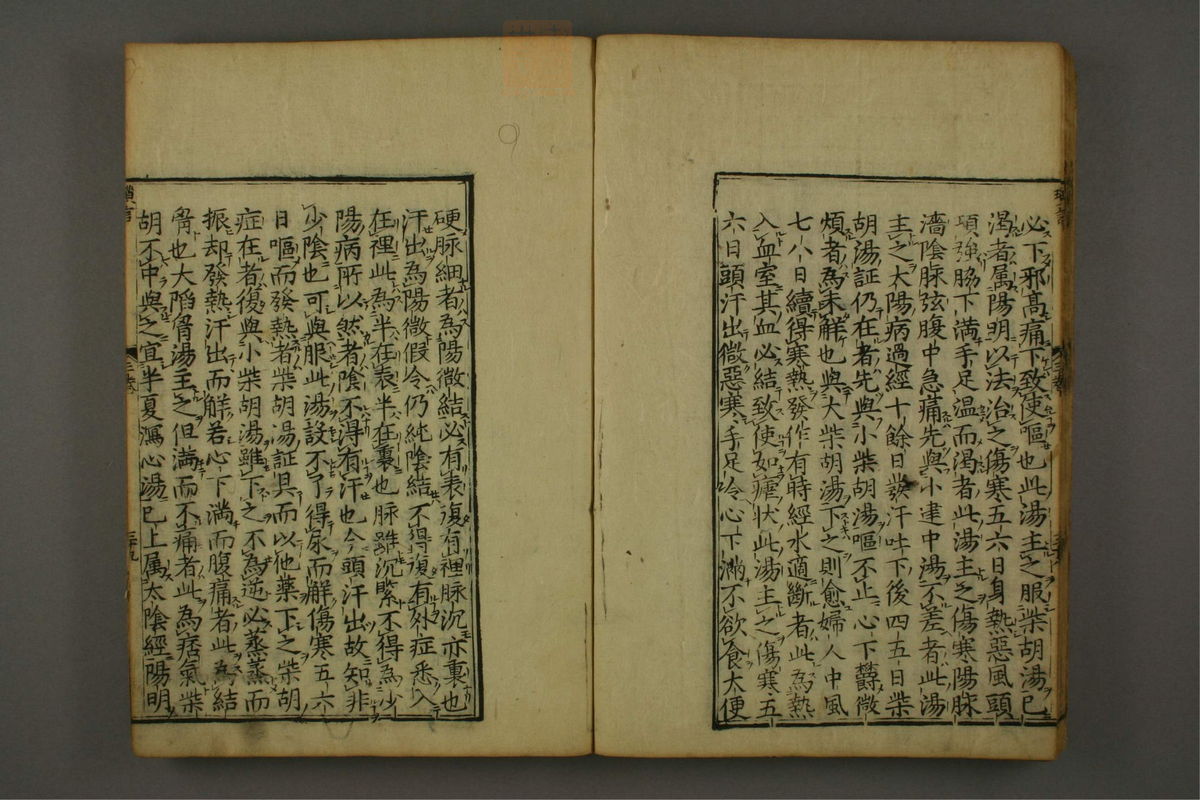 必下邪髙痛下致使嘔也此湯主之服柴胡湯已
渇者属陽明以法治之傷寒五六日身熱惡風頭
項強脇下満手足温而渇者此湯主之傷寒陽脉
濇陰脉弦腹中急痛先與小建中湯不差者此湯
主之太陽病過經十餘日發汗吐下後四五日柴
胡湯証仍在者先與小柴胡湯嘔不止心下欝微
煩者為未解也與大柴胡湯下之則愈婦人中風
七八日續得寒熱發作有時經水適斷者此為熱
入血室其血必結致使如瘧状此湯主之傷寒五
六日頭汗出微惡寒手足冷心下滿不欲食大便
硬脉細者為陽微結必有表復有裡脉沉亦裏也
汗出為陽微假令仍純陰結不得復有外症悉入
在裡此為半在表半在裏也脉雖沉緊不得為少
陽病所以然者陰不得有汗也今頭汗出故知非
少陰也可與服此湯設不了得尿而解傷寒五六
日嘔而發熱者柴胡湯証具而以他藥下之柴胡
症在者復與小柴胡湯雖下之不為逆必蒸蒸而
振却發熱汗出而解若心下満而腹痛者此為結
胷也大陷胷湯主之但満而不痛者此為痞氣柴
胡不中與之宜半夏瀉心湯已上属太陰經陽明
三十九
9